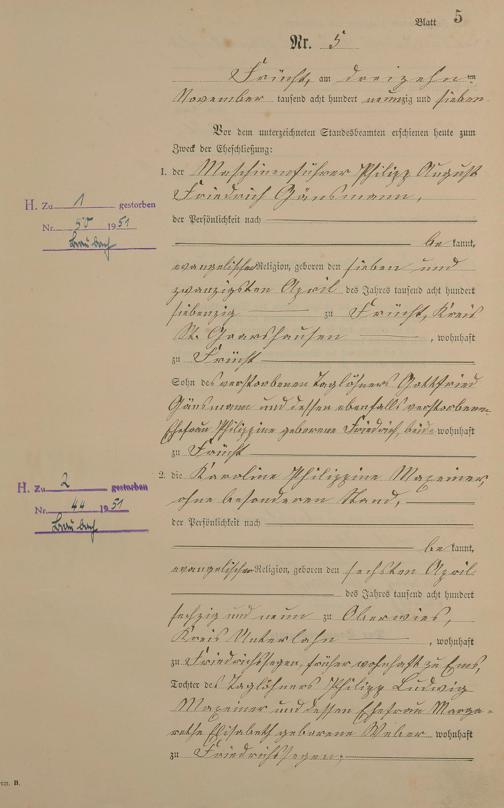 Blatt 5
Nr. 5
Frücht, am dreizehnten
November tausend acht hundert neunzig und sieben
Vor dem unterzeichneten Standesbeamten erschienen heute zum
Zweck der Eheschließung:
1. der Maschinenführer Philipp August
Friedrich Gänsmann,
der Persönlichkeit nach
be kannt,
evangelischer Religion, geboren den sieben und
zwanzigsten April des Jahres tausend acht hundert
siebenzig zu Frücht, Kreis
St. Goarshausen, wohnhaft
zu Frücht
Sohn des verstorbenen Taglöhners Gottfried
Gänsmann und dessen ebenfalls verstorbenen
Ehefrau Philippine geborene Friedrich, beide wohnhaft
zu Frücht
2. die Karoline Philippine Maxeiner,
ohne besonderen Stand,
der Persönlichkeit nach
be kannt,
evangelischer Religion, geboren den sechsten April
des Jahres tausend acht hundert
sechzig und neun zu Oberwies,
Kreis Unterlahn, wohnhaft
zu Friedrichssegen, früher wohnhaft zu Ems,
Tochter des Taglöhners Philipp Ludwig
Maxeiner und dessen Ehefrau Marga-
rethe Elisabeth geborene Weber wohnhaft
zu Friedrichssegen,
H. Zu 1 gestorben
Nr. 50 1951
Braubach
H. Zu 2 gestorben
Nr. 44 1951
Braubach
B.